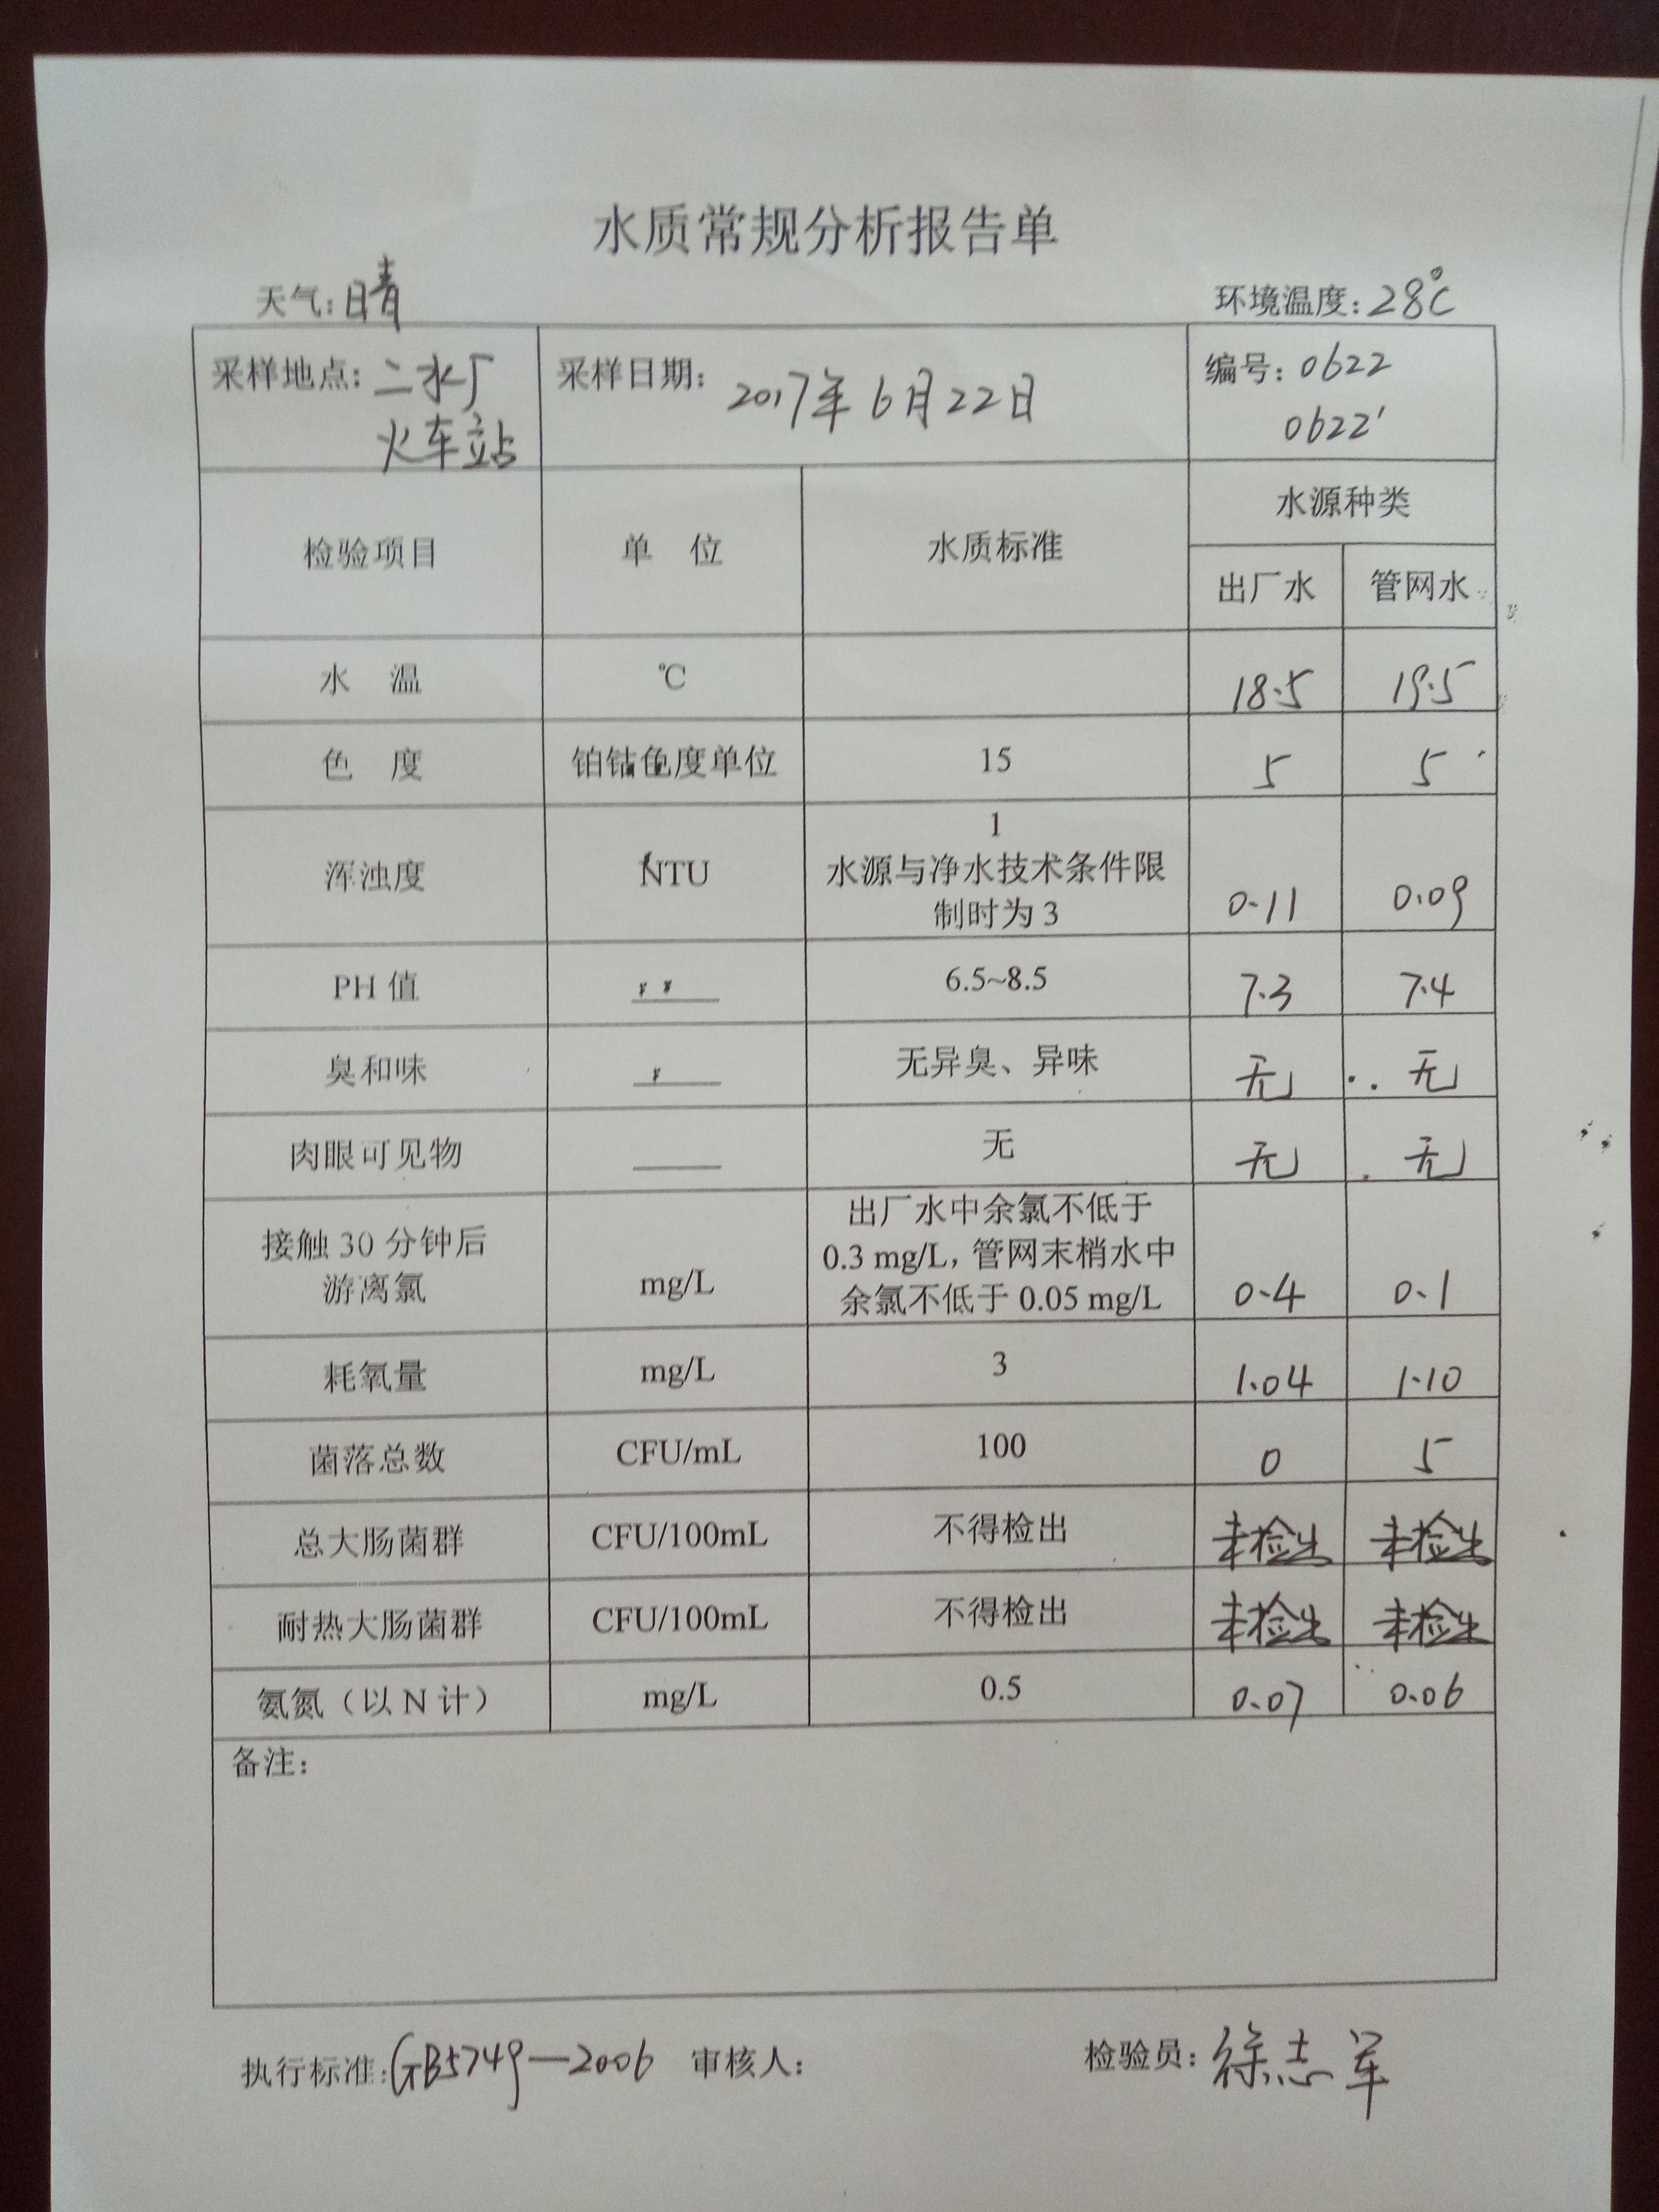 水质常规分析报告单
天气:晴 环境温度:28℃
采样地点:二水厂 采样日期:2017年6月22日 编号:0622
火车站 0622'
检验项目 单 位 水质标准 水源种类
出厂水 管网水
水 温 ℃ 18.5 19.5
色 度 铂钴色度单位 15 5 5
浑浊度 NTU 1 0.11 0.09
水源与净水技术条件限
制时为 3
PH 值 —— 6.5~8.5 7.3 7.4
臭和味 —— 无异臭、异味 无 无
肉眼可见物 —— 无 无 无
接触 30 分钟后 mg/L 出厂水中余氯不低于 0.4 0.1
游离氯 0.3 mg/L, 管网末梢水中
余氯不低于 0.05 mg/L
耗氧量 mg/L 3 1.04 1.10
菌落总数 CFU/mL 100 0 5
总大肠菌群 CFU/100mL 不得检出 未检出 未检出
耐热大肠菌群 CFU/100mL 不得检出 未检出 未检出
氨氮（以 N 计） mg/L 0.5 0.07 0.06
备注:
执行标准:GB5749—2006 审核人: 检验员:徐志军